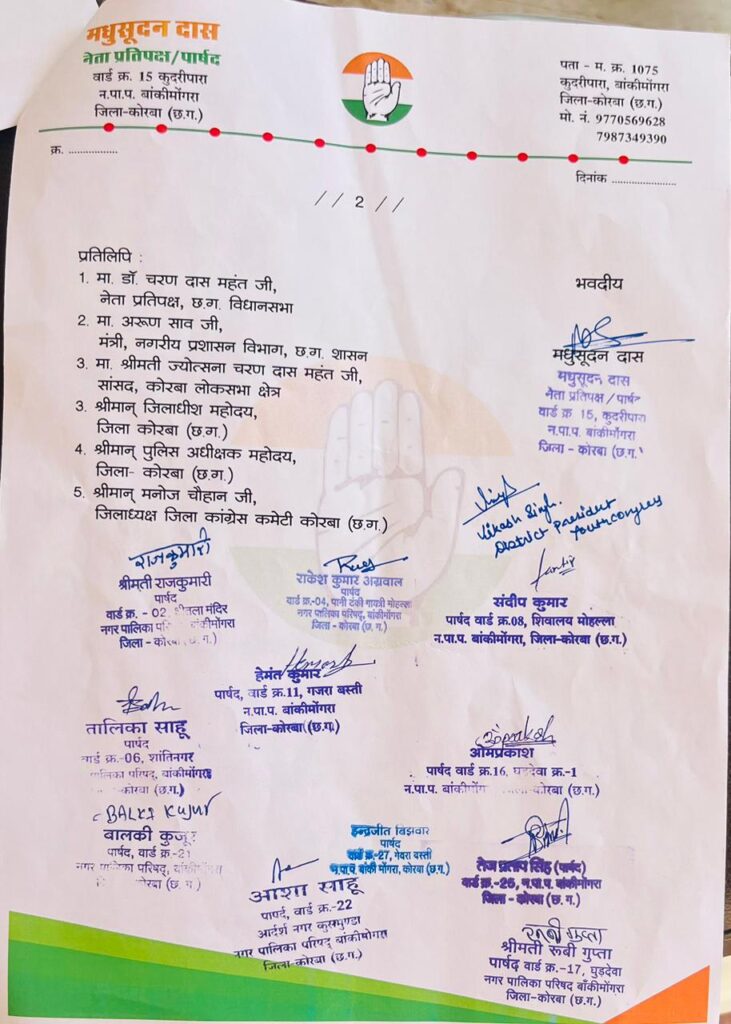 मधुसूदन दास
नेता प्रतिपक्ष/पार्षद
वार्ड क्र. 15 कुदरीपारा
न.पा.प. बांकीमोंगरा
जिला-कोरबा (छ.ग.)
पता - म. क्र. 1075
कुदरीपारा, बांकीमोंगरा
जिला-कोरबा (छ.ग.)
मो. नं. 9770569628
7987349390
क्र. ..................
दिनांक ......................
// 2 //
प्रतिलिपि :
1. मा. डॉ. चरण दास महंत जी,
नेता प्रतिपक्ष, छ.ग. विधानसभा
2. मा. अरूण साव जी,
मंत्री, नगरीय प्रशासन विभाग, छ.ग. शासन
3. मा. श्रीमती ज्योत्सना चरण दास महंत जी,
सांसद, कोरबा लोकसभा क्षेत्र
3. श्रीमान् जिलाधीश महोदय,
जिला कोरबा (छ.ग.)
4. श्रीमान् पुलिस अधीक्षक महोदय,
जिला- कोरबा (छ.ग.)
5. श्रीमान् मनोज चौहान जी,
जिलाध्यक्ष जिला कांग्रेस कमेटी कोरबा (छ.ग.)
भवदीय
मधुसूदन दास
मधुसूदन दास
नेता प्रतिपक्ष / पार्षद
वार्ड क्र 15, कुदरीपारा
न.पा.प. बांकीमोंगरा
जिला - कोरबा (छ.ग.
Vikash Singh.
District President
Youth congress
राजकुमारी
श्रीमती राजकुमारी
पार्षद
वार्ड क्र. - 02 मंदिर
नगर पालिका बांकीमोंगरा
जिला - कोरबा (छ. ग.)
राकेश कुमार अग्रवाल
पार्षद
वार्ड क्र.-04, पानी टंकी गायत्री मोहल्ला
नगर पालिका परिषद्, बांकीमोंगरा
जिला - कोरबा (छ. ग.)
संदीप कुमार
पार्षद वार्ड क्र.08, शिवालय मोहल्ला
न.पा.प. बांकीमोंगरा, जिला-कोरबा (छ.ग.)
हेमंत कुमार
पार्षद, वार्ड क्र.11, गजरा बस्ती
न.पा.प. बांकीमोंगरा
जिला-कोरबा (छ.ग.)
तालिका साहू
पार्षद
वार्ड क्र.-06, शांतिनगर
पालिका परिषद्, बांकीमोंगरा
कोरबा (छ.ग.)
ओमप्रकाश
पार्षद वार्ड क्र.16, घुड़देवा क्र.-1
न.पा.प. बांकीमोंग -कोरबा (छ.ग.)
BALKI KUJUR
बालकी कुजूर
पार्षद, वार्ड क्र.-21
नगर पालिका परिषद्, बांकीमोंगरा
कोरबा (छ. ग.)
इन्द्रजीत बिंझवार
पार्षद
वार्ड क्र.-27, गेवरा बस्ती
न.पा.प. बांकी मोंगरा, कोरबा (छ.ग.)
तेज प्रताप सिंह (पार्षद)
वार्ड क्र.-25, न.पा.प. बांकीमोंगरा
जिला - कोरबा (छ.ग.)
आशा साहू
पार्षद, वार्ड क्र.-22
आर्दश नगर कुसमुण्डा
नगर पालिका परिषद् बांकीमोंगरा
जिला-कोरबा (छ.ग.)
रूबी गुप्ता
श्रीमती रूबी गुप्ता
पार्षद वार्ड क्र.-17, घुड़देवा
नगर पालिका परिषद बाँकीमोंगरा
जिला-कोरबा (छ.ग.)